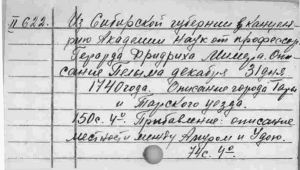 II 622. Из Сибирской губернии в канцеля-
рию Академии Наук от профессора
Герарда Фридриха Милера. Опи-
сание Пелыма декабря 31 дня
1740 года. Описание города Тары
и Тарского уезда.
150 с. 4°. Прибавление: описание
местности между Амуром и Удою.
74 с. 4°